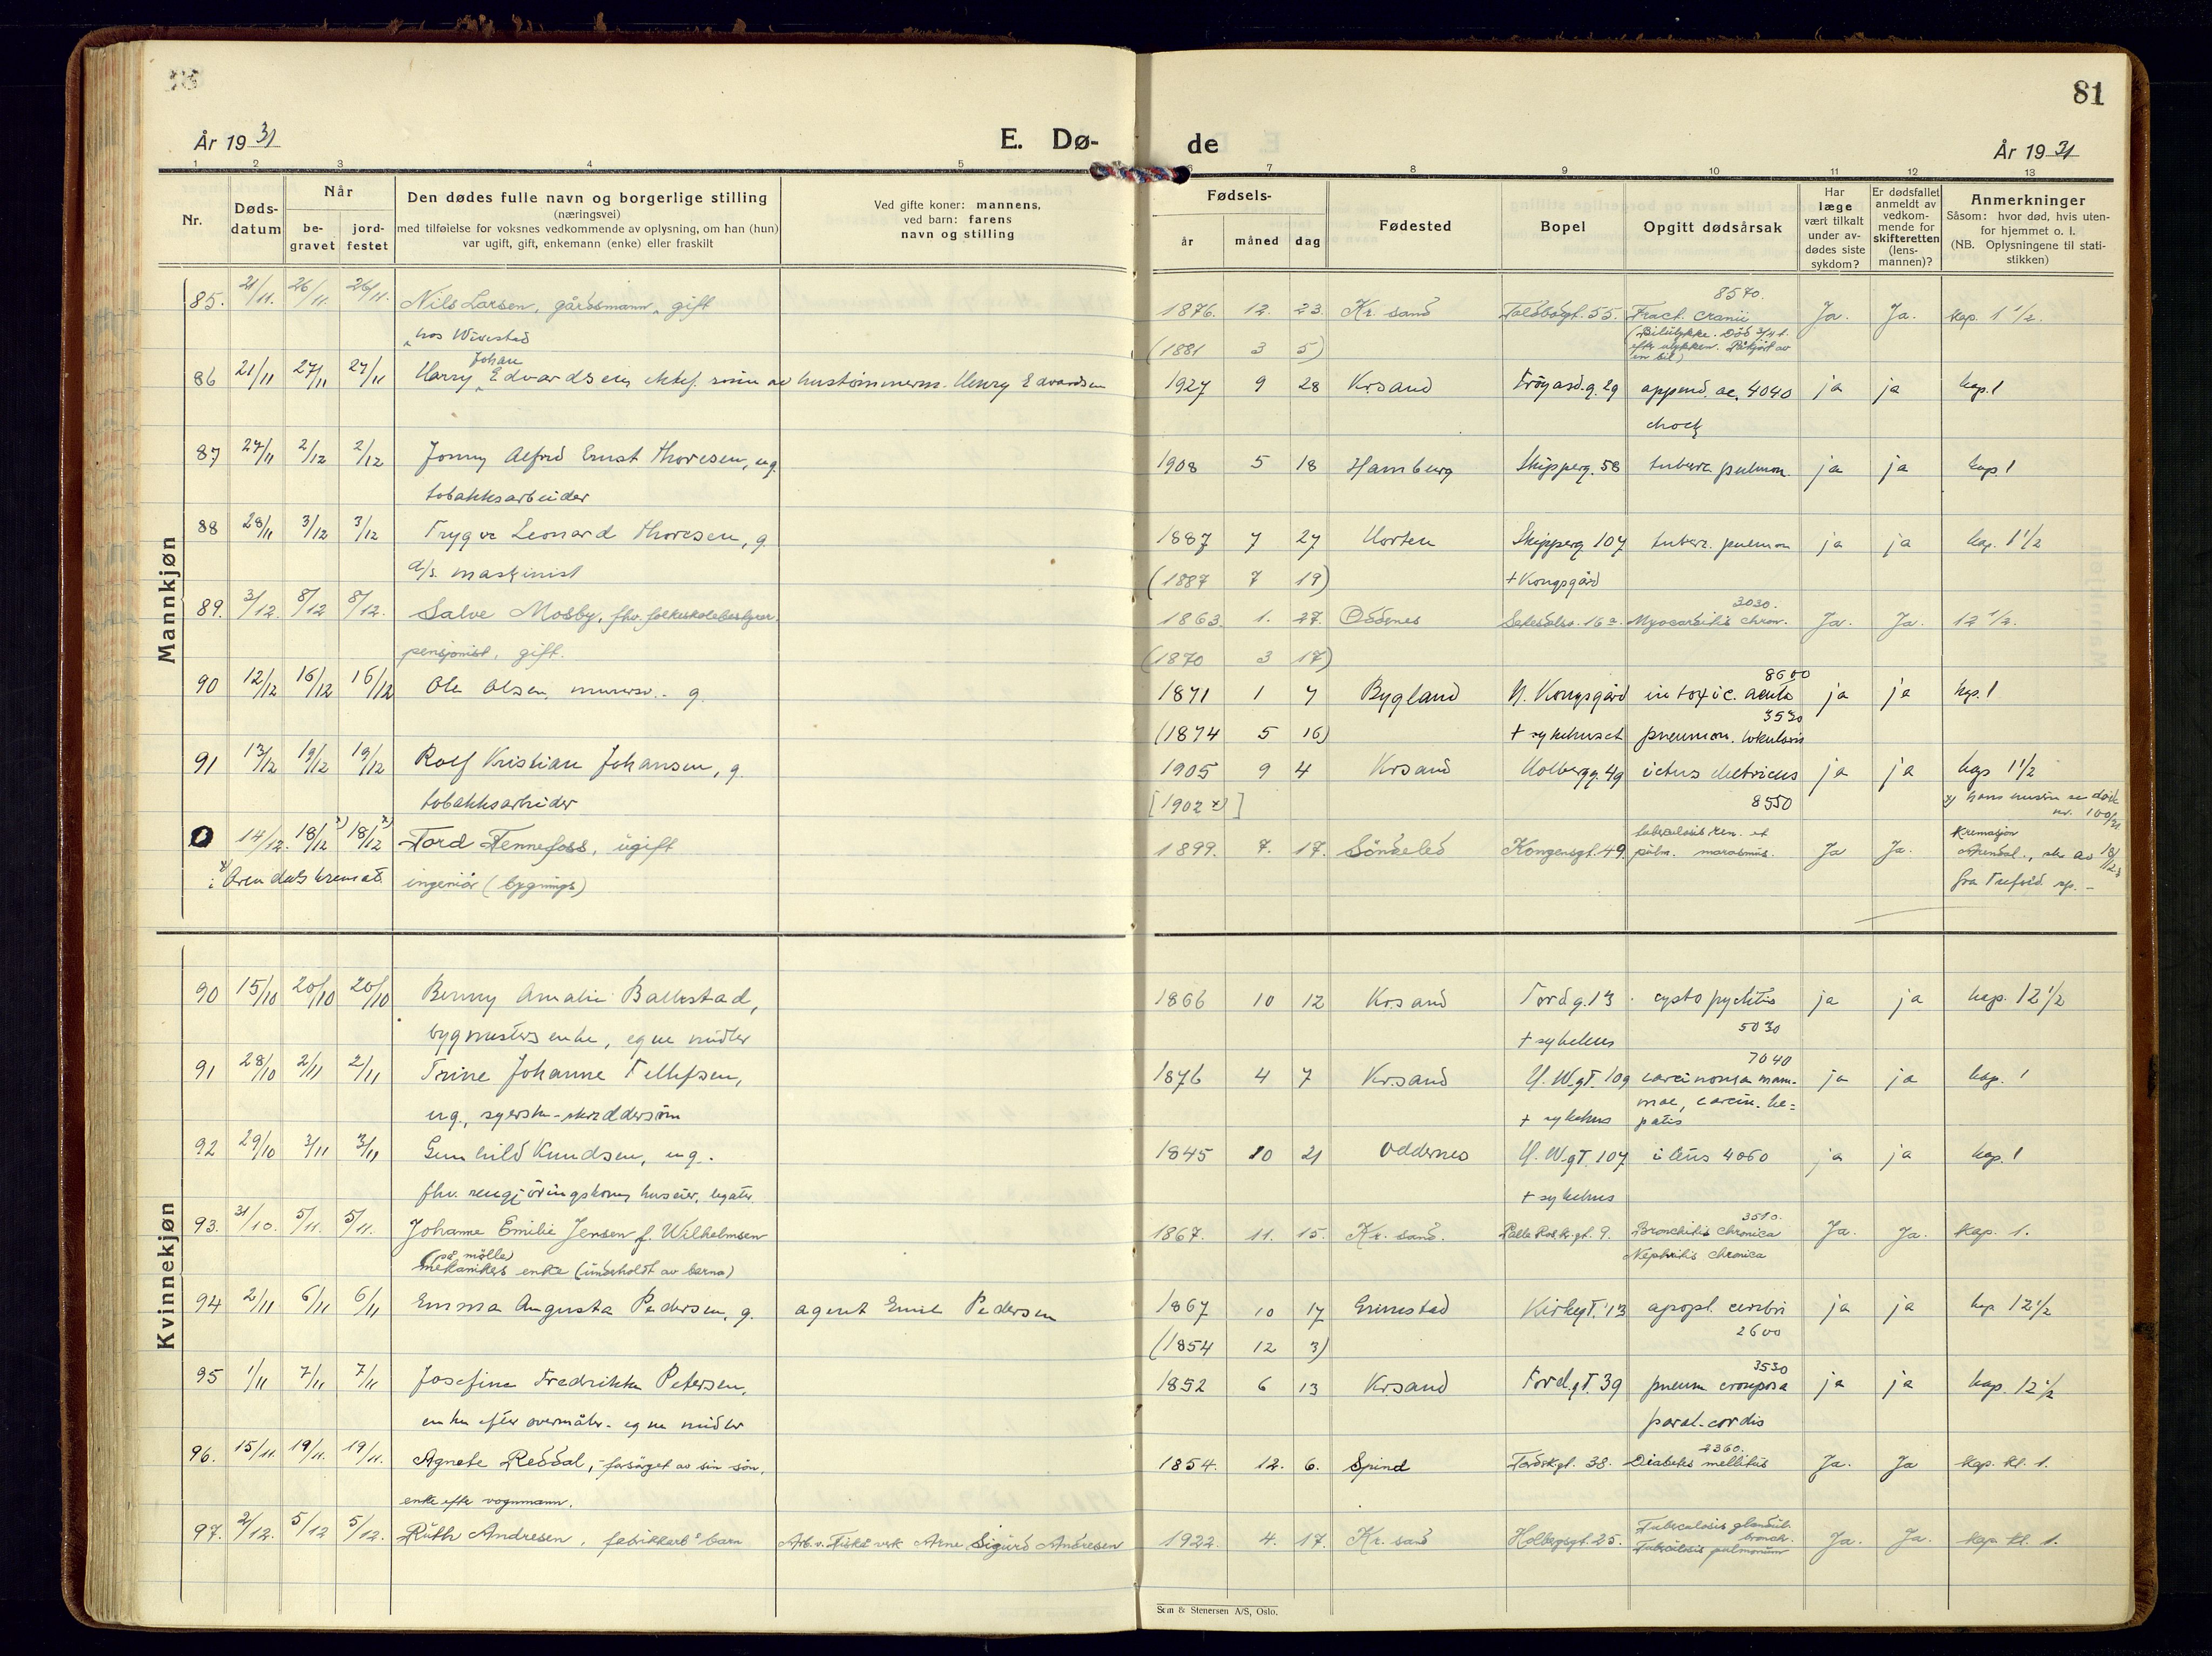 81
År 19 31
E. Dø-
de
År 19 31
1 2 3 4 5
6 7 8 9 10 11 12 13
Nr.
Døds-
datum
Når
be-
gravet
jord-
festet
Den dødes fulle navn og borgerlige stilling
(næringsvei)
med tilføielse for voksnes vedkommende av oplysning, om han (hun)
var ugift, gift, enkemann (enke) eller fraskilt
Ved gifte koner: mannens,
ved barn: farens
navn og stilling
Fødsels-
år måned dag
Fødested
Bopel
Opgitt dødsårsak
Har
læge
vært tilkalt
under av-
dødes siste
sykdom?
Er dødsfallet
anmeldt av
vedkom-
mende for
skifteretten
(lens-
mannen)?
Anmerkninger
Såsom: hvor død, hvis uten-
for hjemmet o. l.
(NB. Oplysningene til stati-
stikken)
Mannkjøn
8570.
85. 21/11. 26/11. 26/11. Nils Larsen, gårdsmann, gift 1876. 12. 23. Kr. sand Toldbodgt. 55. Fract. cranii Ja. Ja. kap. 1 1/2.
hos Wivestad (Bilulykke. Död 3/4 t.
(1881 3 5) efter ulykken. Påkjört av
en bil)
Johan
86 21/11 27/11 27/11 Harry Edvardsen ektef. sönn av hustömmerm. Henry Edvardsen 1927 9 28 Krsand Fröyasd.g. 29 append. ac. 4040 ja ja kap. 1
chock
87 27/11 2/12 2/12 Jonny Alfred Ernst Thoresen, ug. 1908 5 18 Hamburg Skipperg. 58 tuberc. pulmon. ja ja kap 1
tobakksarbeider
88 28/11 3/12 3/12 Trygve Leonard Thoresen, g. 1887 7 27 Horten Skipperg 107 tuberc. pulmon ja ja kap. 1 1/2
d/s. maskinist (1887 7 19) + Kongsgård
3030.
89. 3/12. 8/12 8/12. Salve Mosby, fhv. folkeskolebestyrer. 1863. 1. 27. Oddernes Setesdalsv. 16 a. Myocarditis chron. Ja. Ja. 12 1/2.
pensjonist, gift. (1870 3 17)
8600
90 12/12 16/12 16/12 Ole Olsen, murersv.. g. 1871 1 7 Bygland N. Kongsgård intoxic. acuta ja ja kap. 1
3530
(1874 5 16) + sykehuset pneumon. lobularis
91 13/12 19/12 19/12 Rolf Kristian Johansen, g. 1905 9 4 Krsand Holbergg. 49 ictus electricus ja ja kap 1 1/2
tobakksarbeider [1902 x)] 8550 x) hans hustru se döde
nr. 100/31
14/12. 18/12 x) 18/12 x) Tord Fennefoss, ugift 1899. 7. 17. Söndeled Kongensgt. 49. tuberculosis ren. et Ja Ja. Kremasjon
pulm. marasmus. Arendal.,
x) i Arendals kremat. ingeniör (bygnings)
Kvinnekjøn
90 15/10 20/10 20/10 Benny Amalie Ballestad, 1866 10 12 Krsand Tordg. 13 cysto pyelitis ja ja kap. 12 1/2
bygmesters enke, egne midler + sykehus 5030
7040
91 28/10 2/11 2/11 Trine Johanne Tellefsen, 1876 4 7 Kr.sand H. W.gt. 109 carcinoma mam- ja ja kap. 1
ug., syerske - skreddersöm + sykehus mae, carcin. he=
patis
92 29/10 3/11 3/11 Gunhild Knudsen, ug. 1845 10 21 Oddernes H. W.gt. 107 ileus 4060 ja ja kap. 1
fhv. rengjöringskone, huseier, legater. + sykehus
3510.
93. 31/10. 5/11. 5/11. Johanne Emilie Jensen f. Wilhelmsen 1867. 11. 15. Kr. sand. Palle Ros.kr.gt. 9. Bronchitis chronica Ja. Ja. Kap. 1.
(på mölle) Nephritis chronica
mekanikers enke (underholdt av barna)
94 2/11 6/11 6/11 Emma Augusta Pedersen, g. agent Emil Pedersen 1867 10 17 Grimstad Kirkegt. 13 apopl. cerebri ja ja kap 12 1/2
(1854 12 3) 2600
3530
95 1/11 7/11 7/11 Josefine Fredrikke Petersen, 1852 6 13 Krsand Tord.gt. 39 pneum crouposa ja ja kap. 12 1/2
enke efter overmåler - egne midler paral. cordis
2360.
96. 15/11. 19/11. 19/11. Agnete Reddal, - forsörget av sin sön, 1854. 12. 6. Spind Tordskgt. 38. Diabetes mellitus Ja. Ja kap. kl. 1.
enke efter vognmann.
97. 2/12. 5/12 5/12. Ruth Andresen, fabrikkarb's barn Arb. v. Fiskå verk Arne Sigurd Andresen 1922. 4. 17. Kr. sand Holbergsgt. 25. Tuberculosis glandul. Ja. Ja. kap. kl. 1.
bronch.
Tuberculosis pulmonum
Sem & Stenersen A/S, Oslo.